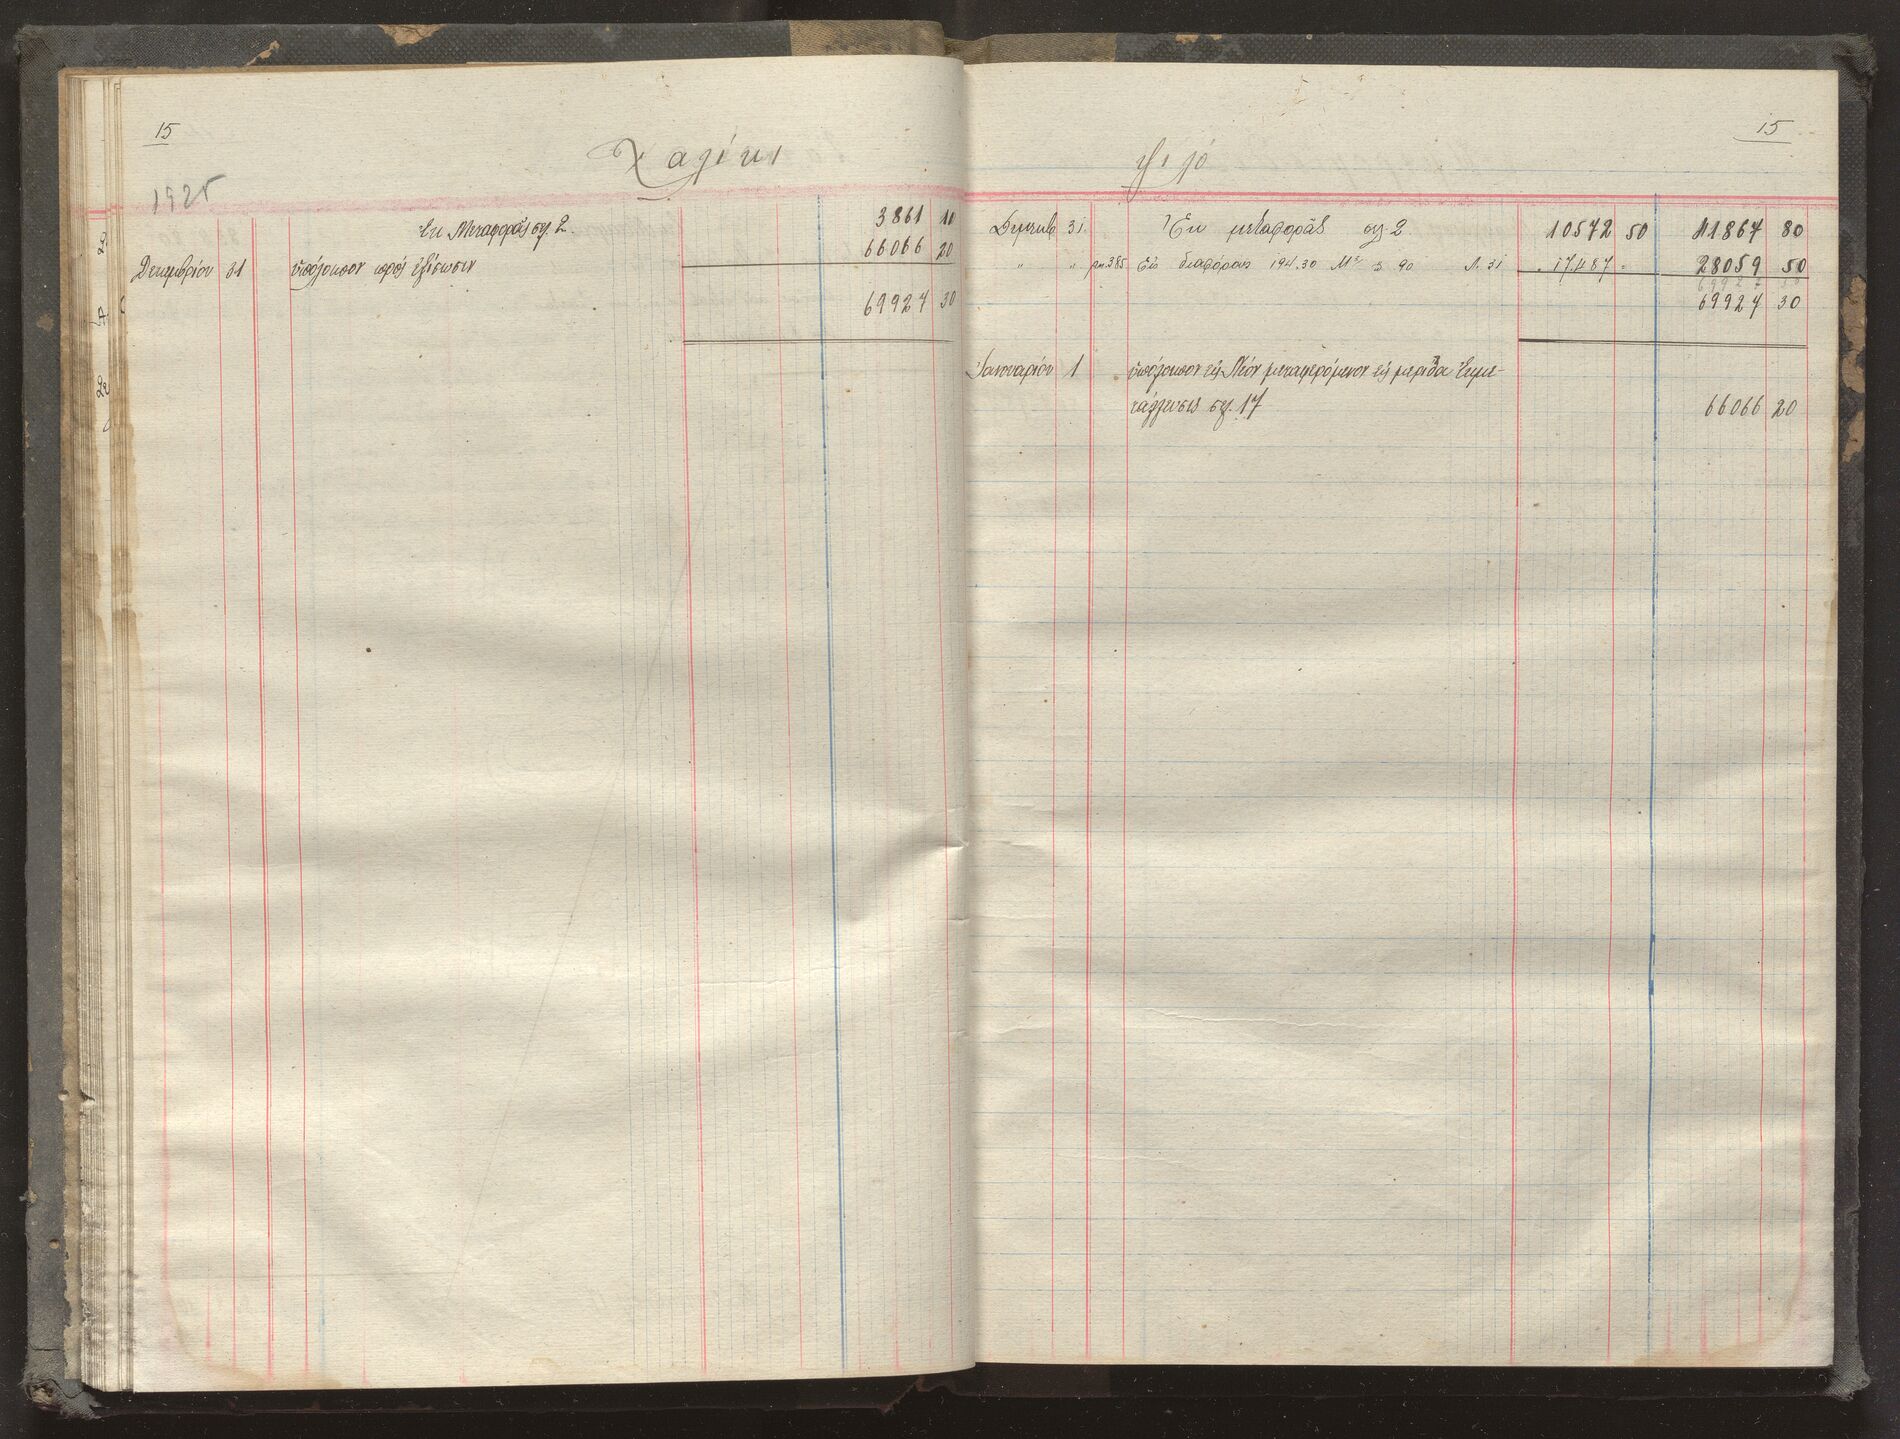 15
Χαλίκι
1925
Ἐκ Μεταφορᾶς σελ. 2 3861 10
66066 20
Δεκεμβρίου 31 ὑπόλοιπον πρὸς ἐξίσωσιν
69927 30
15
ψιλό
31 Ἐκ μεταφορᾶς σελ. 2 10572 50 41867 80
" " 385 Εἰς διαφόρους 194.30 Μ3 90 Λ. 31 17.487 28059 50
69927 30
69927 30
Ἰανουαρίου 1 ὑπόλοιπον εἰς Νέον μεταφερόμενον εἰς μερίδα Ἐκμε-
ταλλευσις σελ. 17 66066 20